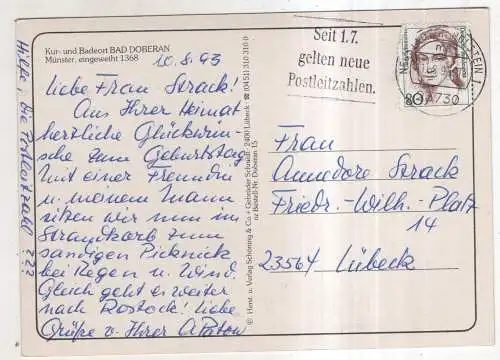 Kur- und Badeort BAD DOBERAN
Münster, eingeweiht 1368
10.8.93
Liebe Frau Strack!
Aus Ihrer Heimat
herzliche Glückwün-
sche zum Geburtstag
Mit einer Freundin
u. meinem Mann
sitzen wir nun im
Strandkorb zum
sandigen Picknick
bei Regen u. Wind.
Gleich geht es weiter
nach Rostock! Liebe
Grüße v. Ihrer
Hilfe, die Postleitzahl ???
© Herst. u. Verlag Schöning & Co + Gebrüder Schmidt, 2400 Lübeck ☎ (0451) 310 310 0
Bestell-Nr. Doberan 15
Seit 1.7.
gelten neue
Postleitzahlen.
80
Frau
Annedore Strack
Friedr.-Wilh.-Platz
14
23564 Lübeck